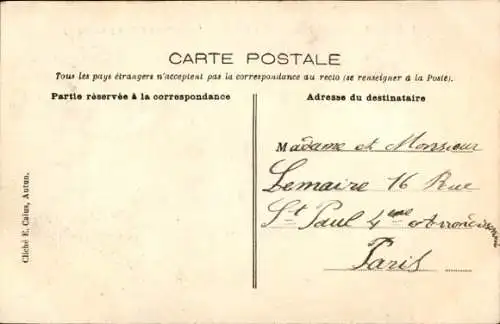 CARTE POSTALE
Tous les pays étrangers n'acceptent pas la correspondance au recto (se renseigner à la Poste).
Partie réservée à la correspondance
Adresse du destinataire
Madame et Monsieur
Lemaire 16 Rue
St Paul 4eme Arrondissement
Paris
Cliché E. Caius, Autun.